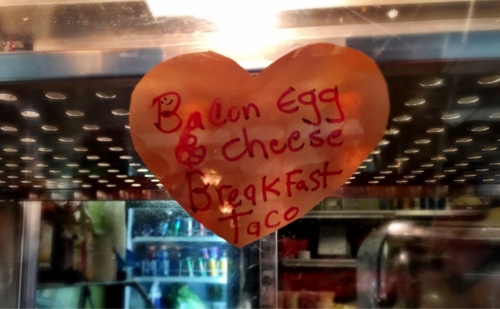 Bacon Egg
& cheese
BreakFast
Taco